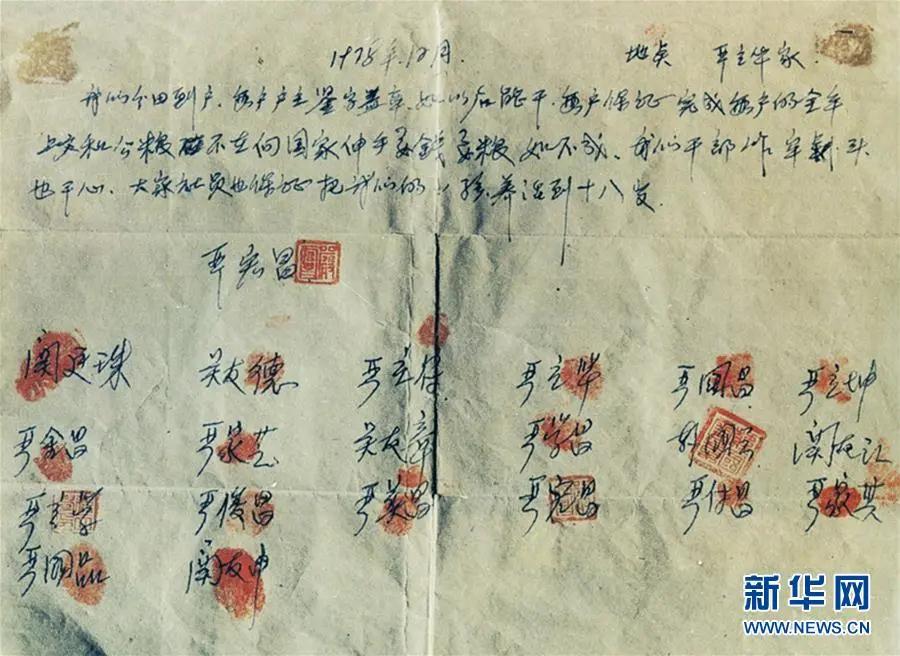 1978年.12月. 地点 严立华家.
我们分田到户.每户户主鉴字盖章.如以后能干.每户保证完成每户的全年
上交和公粮不在向国家伸手要钱要粮如不成.我们干部作牢刹头
也干心.大家社员也保证把我们的小孩养活到十八岁.
严宏昌
关廷珠 关友德 严立符 严立华 严国昌 严立坤
严金昌 严家芝 关友章 严学昌 韩国云 关友江
严立学 严俊昌 严美昌 严宏昌 严付昌 严家其
严国品 关友申
新华网
WWW.NEWS.CN